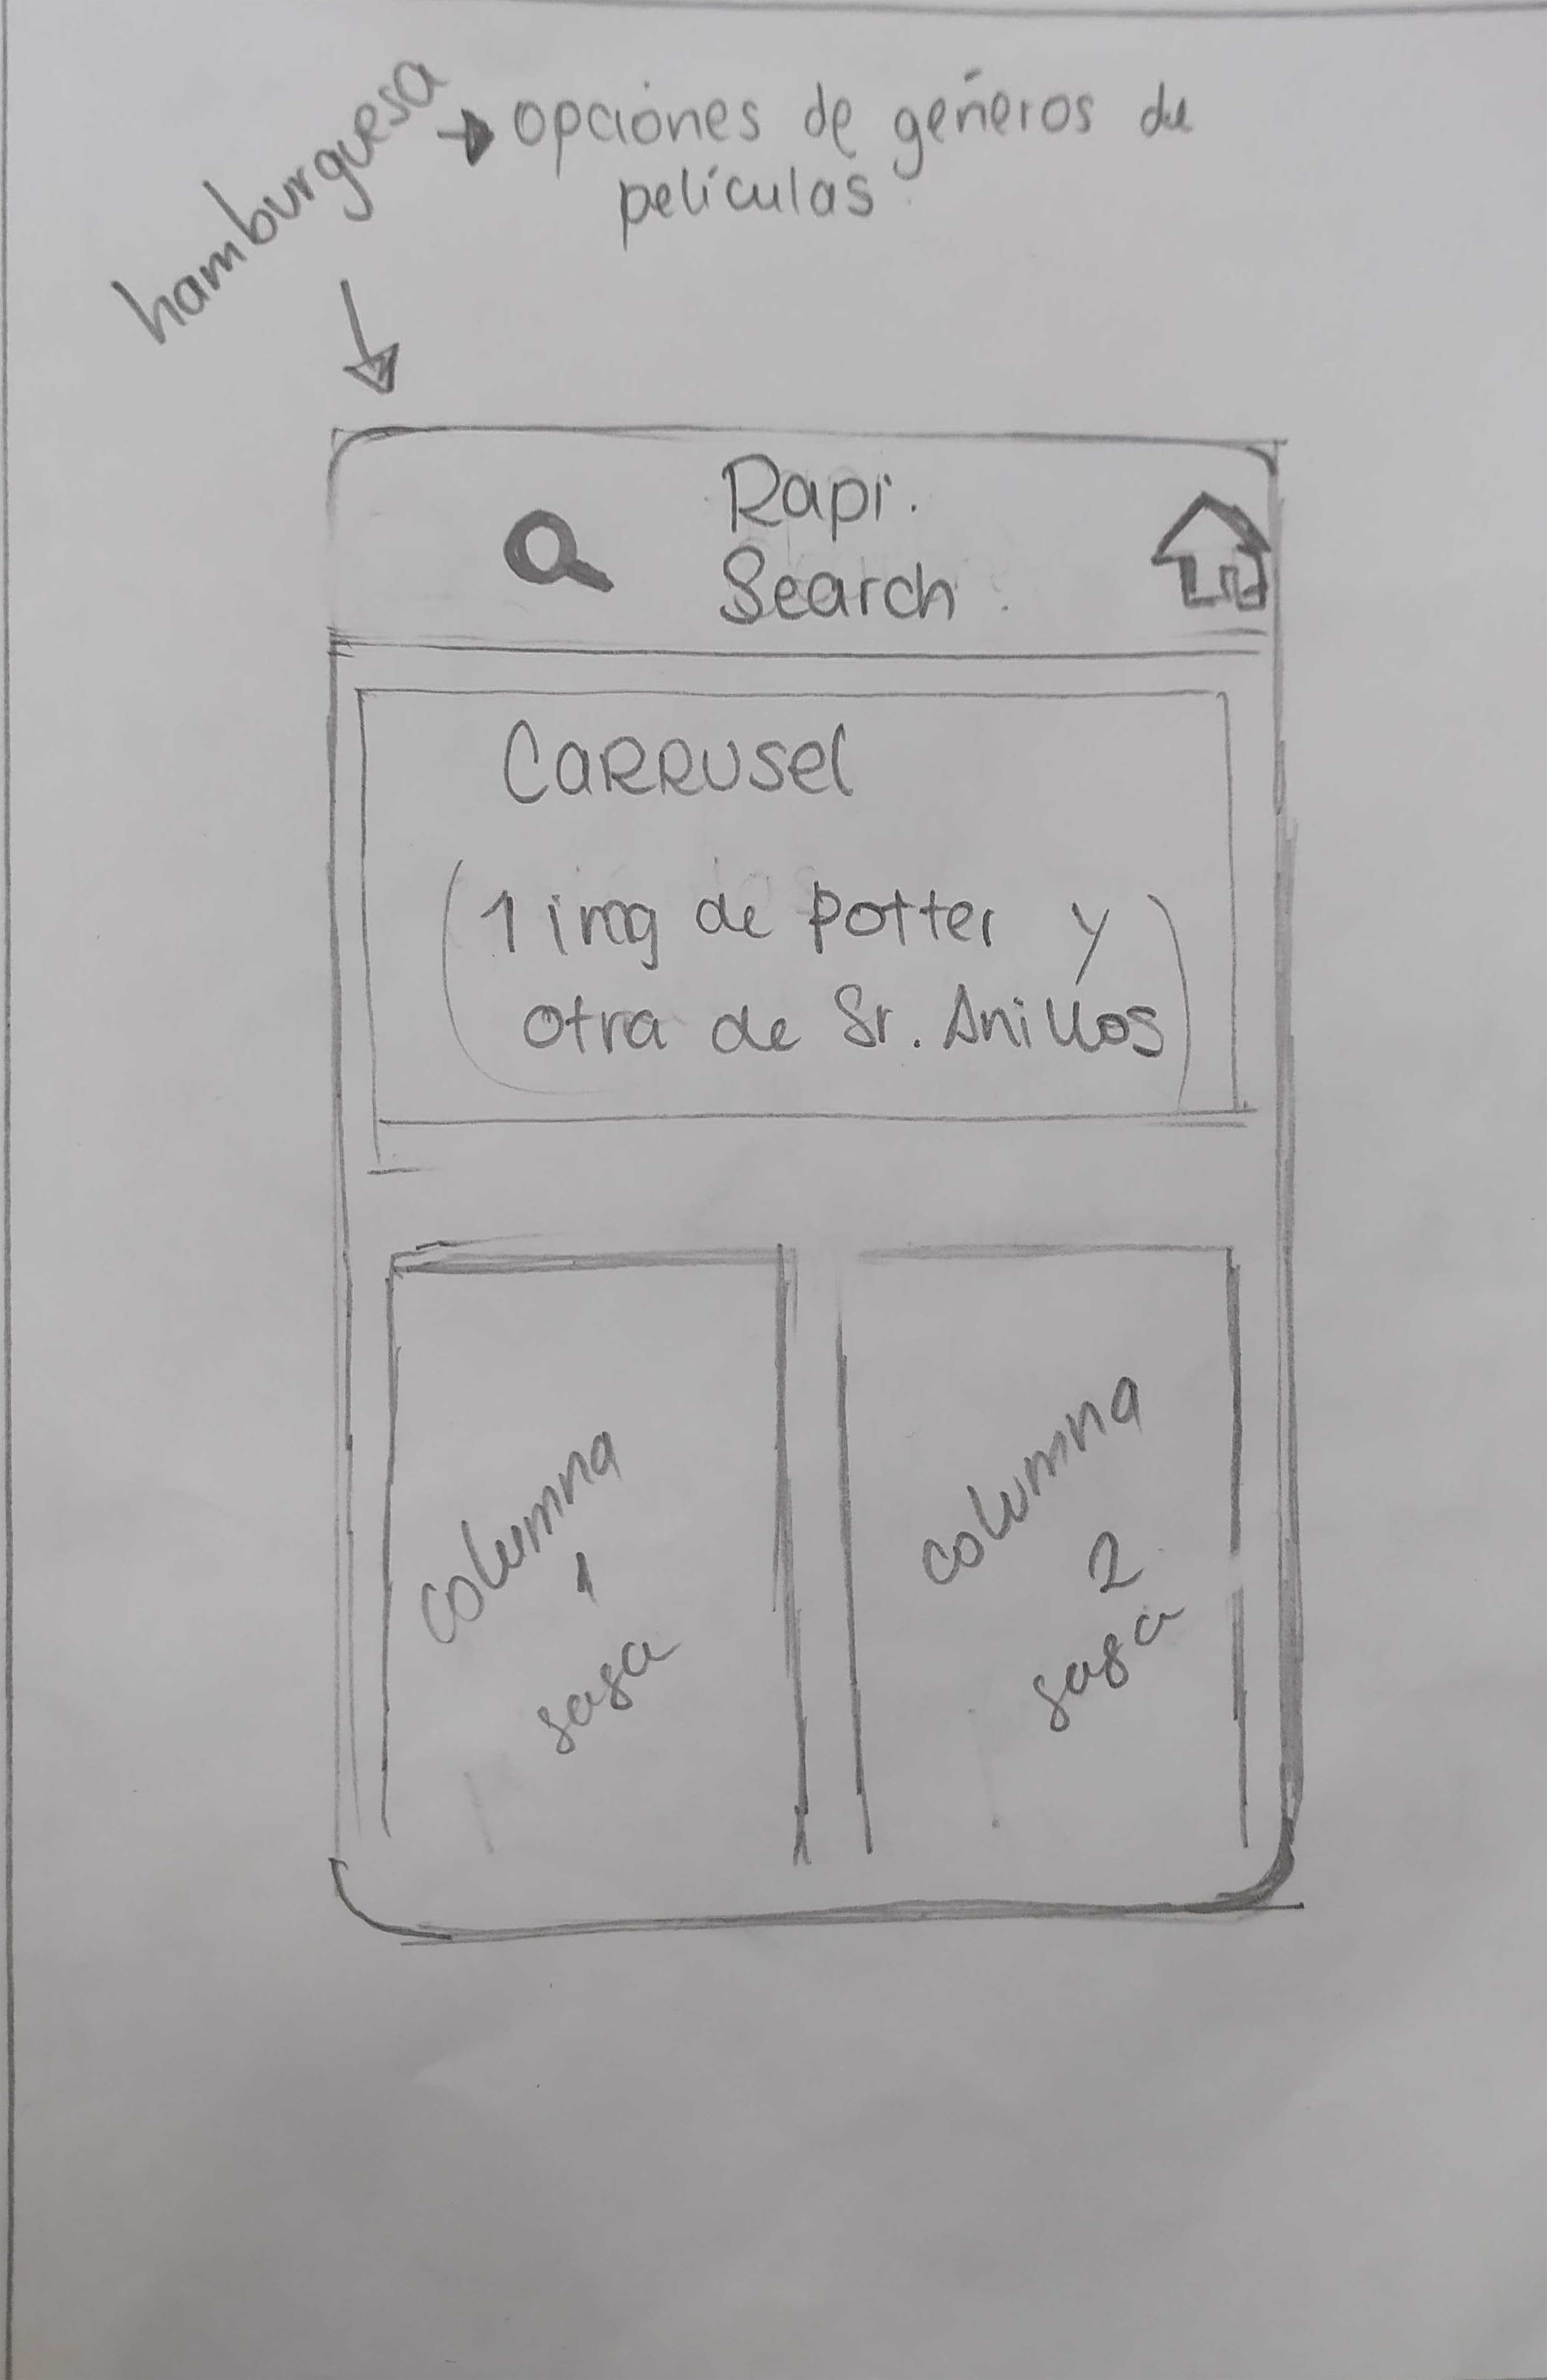 hamburguesa
opciones de géneros de
películas
Rapi.
Search
CARRUSel
(1 img de potter y
otra de Sr. Anillos)
columna
1
saga
columna
2
saga